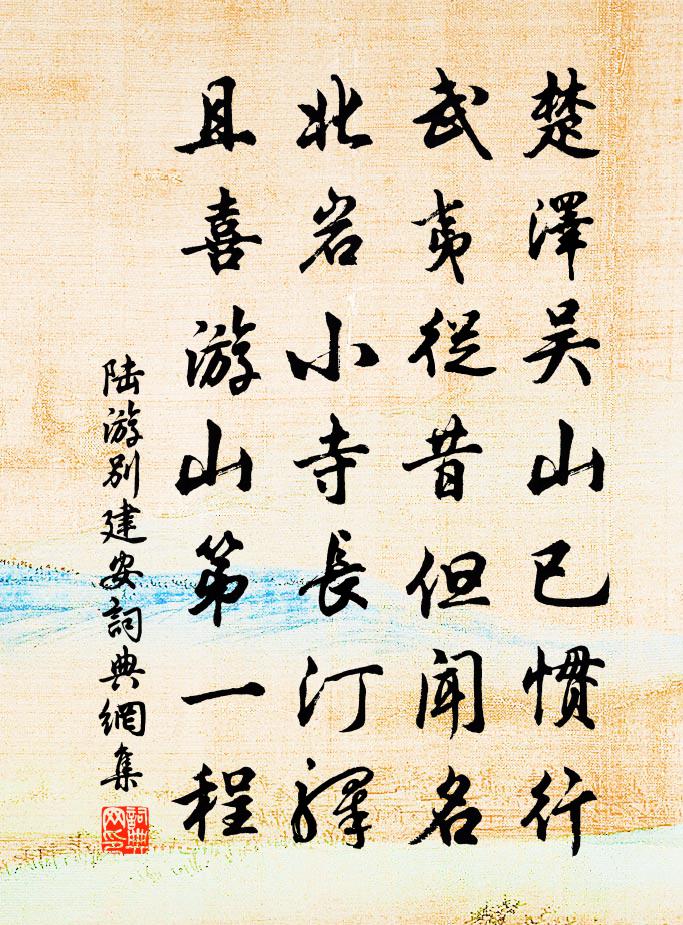 楚澤吴山已慣行
武夷從昔但聞名
北岩小寺長汀驛
且喜游山第一程
陆游别建安詞典網集
詞典网印